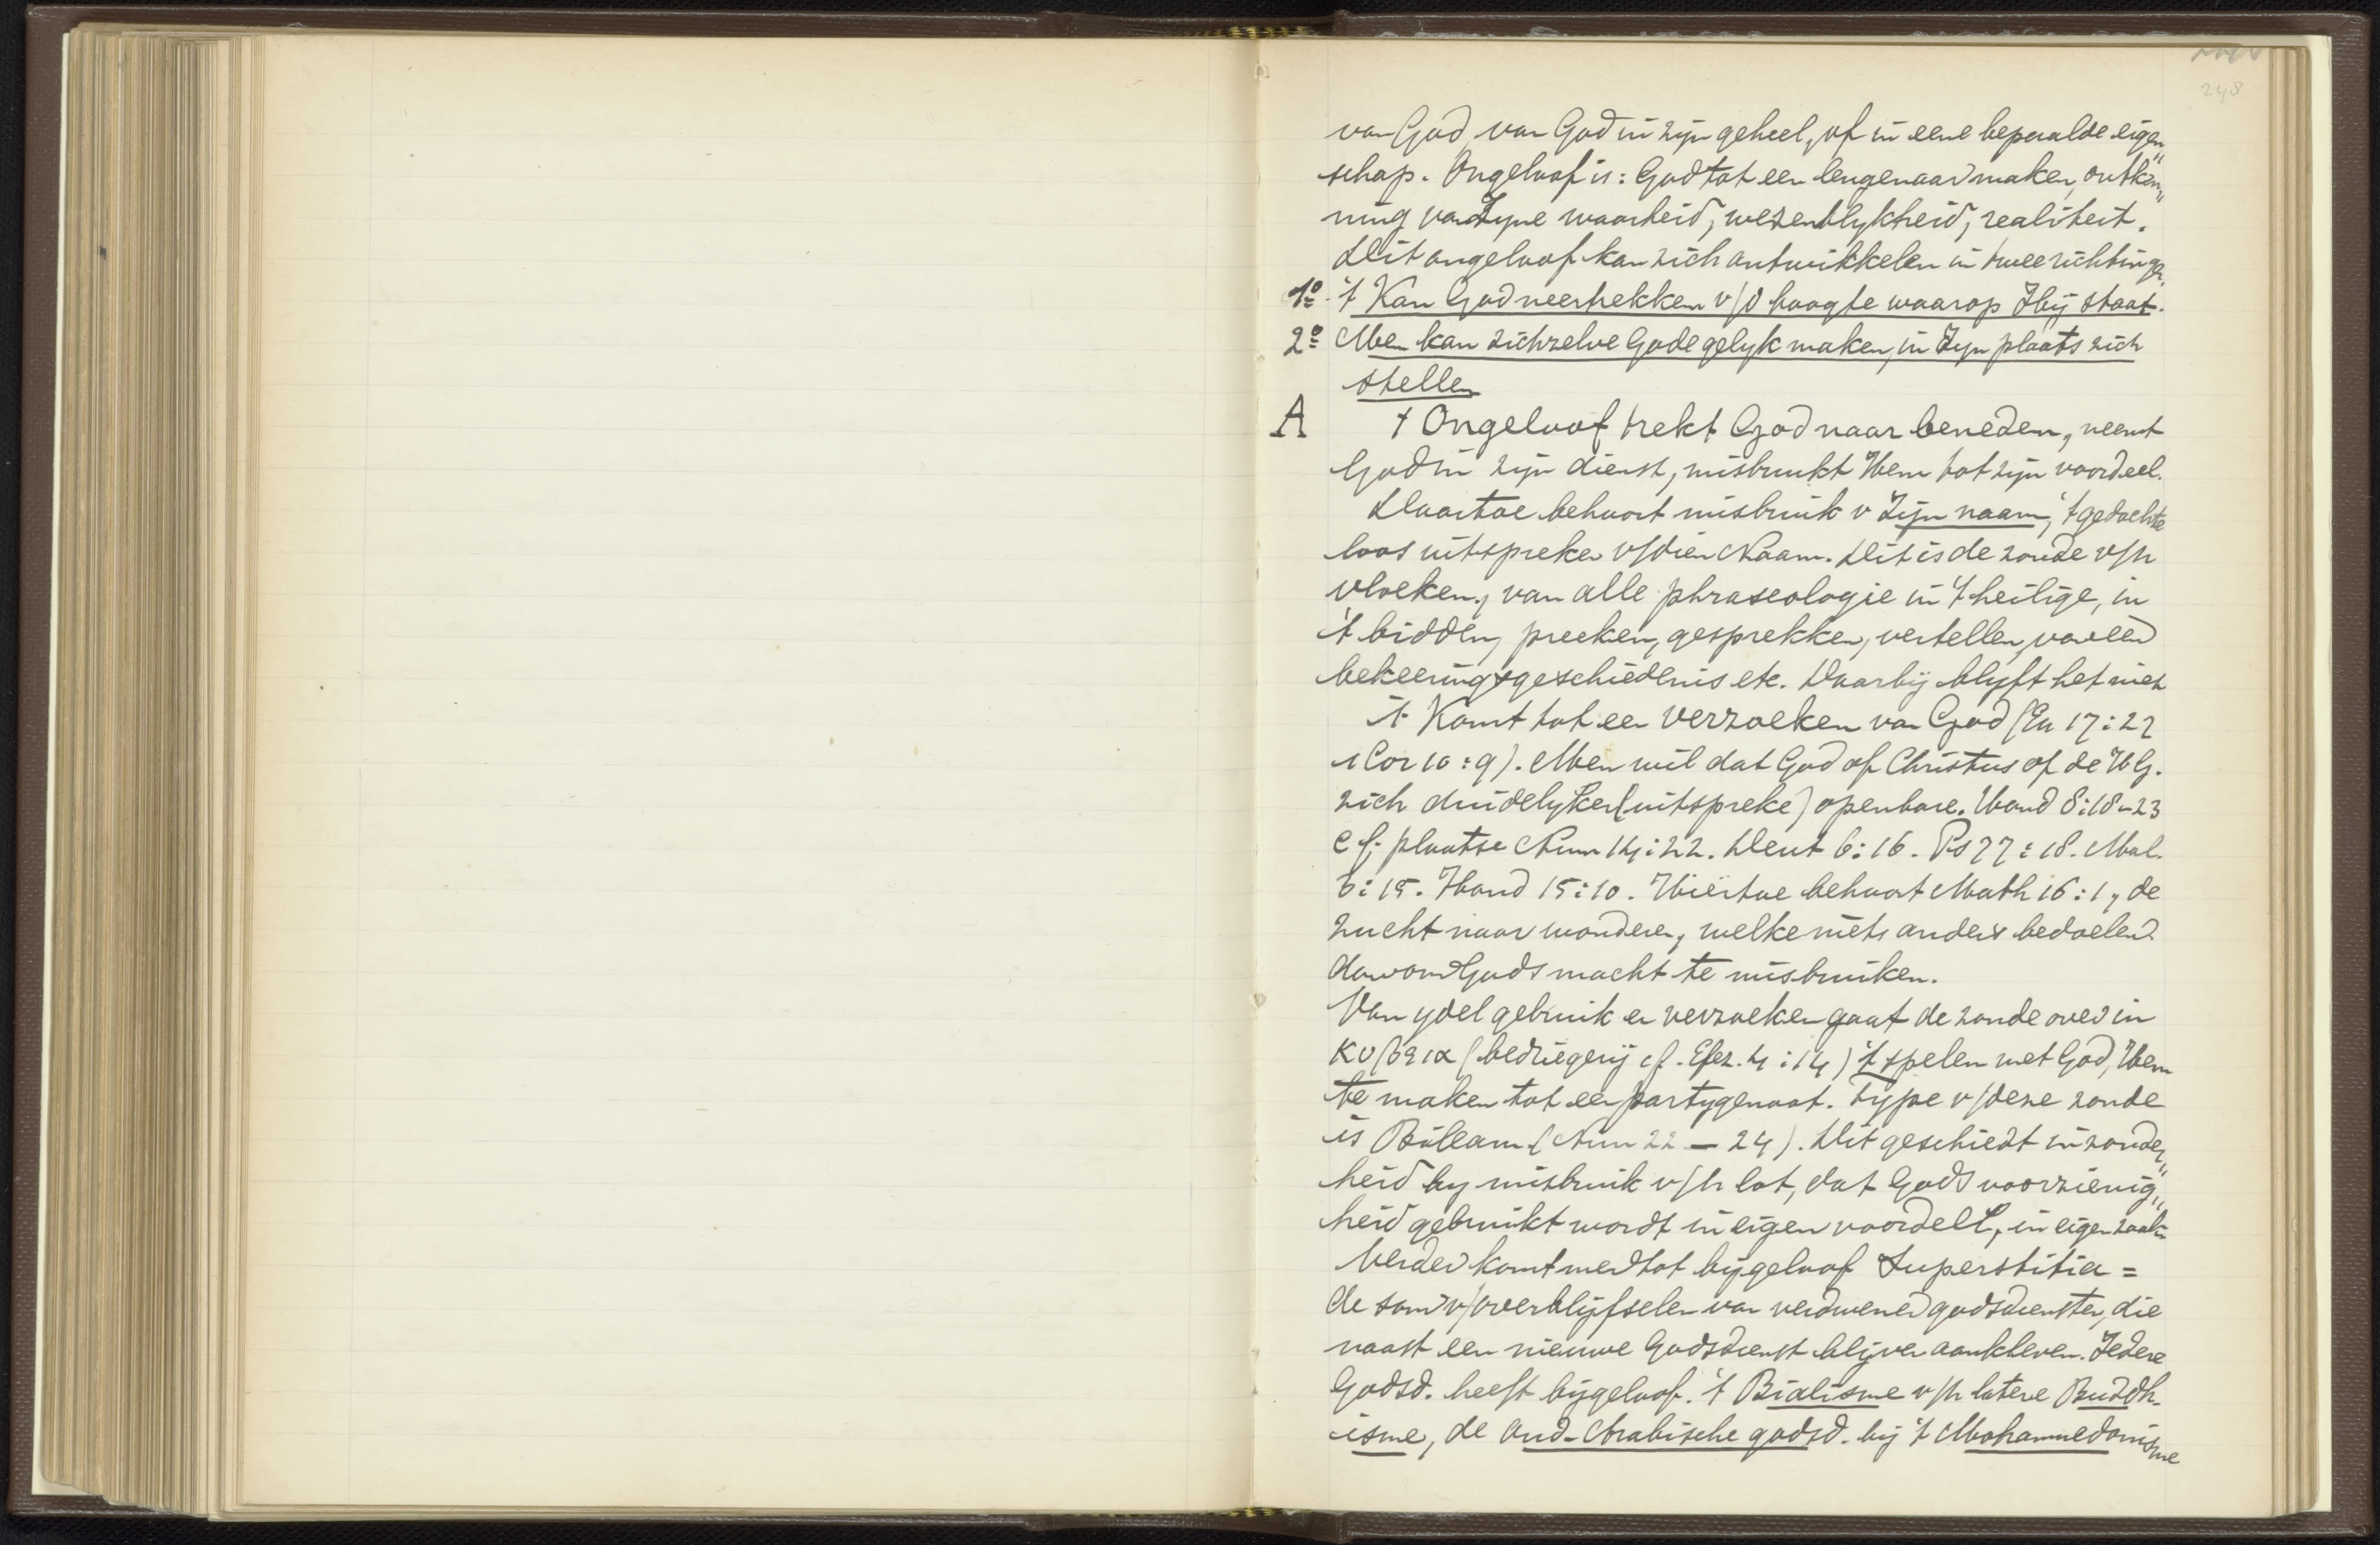 248
van God, van God in zijn geheel, of in eene bepaalde eigen„
schap. Ongeloof is: God tot een leugenaar maken, ontken„
ning van Zyne waarheid, wezenlykheid, realiteit.
Dit ongeloof kan zich ontwikkelen in twee richtingen.
1º 't Kan God neertrekken v/d hoogte waarop Hij staat.
2º Men kan zichzelve Gode gelyk maken, in Zyn plaats zich
stellen
A 't Ongeloof trekt God naar beneden, neemt
God in zijn dienst, misbruikt Hem tot zijn voordeel.
Daartoe behoort misbruik v Zijn naam, 't gedachte
loos uitspreken v/dien Naam. Dit is de zonde v/h
vloeken, van alle phraseologie in 't heilige, in
't bidden, preeken, gesprekken, vertellen van een
bekeeringsgeschiedenis etc. Daarbij blyft het niet
't Komt tot een verzoeken van God (Ex 17:22
1 Cor 10:9). Men wil dat God of Christus of de H G.
zich duidelyker (uitspreke) openbare. Hand 8:18-23
cf. plaatse Num 14:22. Deut 6:16. Ps 77:18. Mal.
3:15. Hand 15:10. Hiertoe behoort Math 16:1, de
zucht naar wonderen, welke niets anders bedoelen
dan om Gods macht te misbruiken.
Van ydel gebruik en verzoeken gaat de zonde over in
κυβεια (bedriegerij cf. Efez. 4:14) 't spelen met God, Hem
te maken tot een partygenoot. Type v/deze zonde
is Bileam (Num 22-24). Dit geschiedt inzonder„
heid by misbruik v/h lot, dat Gods voorzienig„
heid gebruikt wordt in eigen voordeel, in eigen zaak
Verder komt men tot bijgeloof Superstitia =
de som v/overblijfselen van verdwenen godsdiensten, die
naast een nieuwe Godsdienst blijven aankleven. Iedere
Godsd. heeft bijgeloof. 't Bialisme v/h latere Buddh-
isme, de Oud-Arabische godsd. bij 't Mohammedanisme